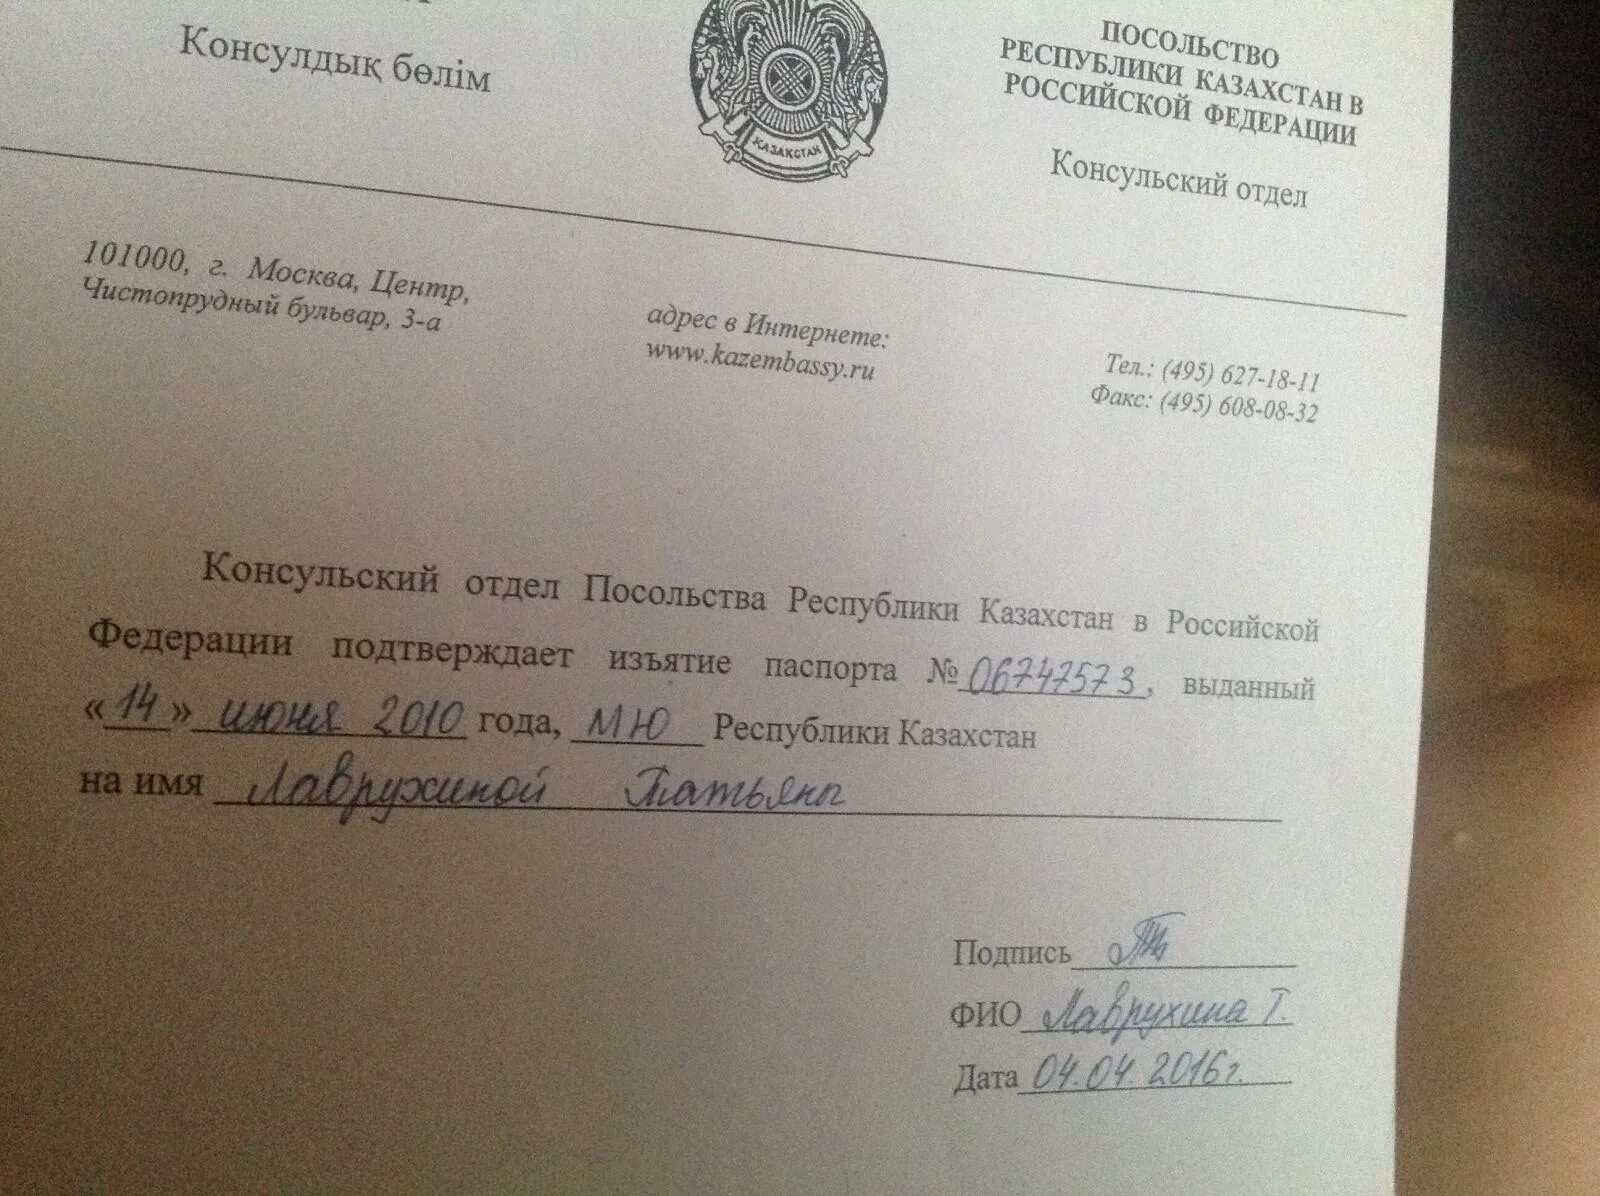 Консулдық бөлім
ҚАЗАҚСТАН
ПОСОЛЬСТВО
РЕСПУБЛИКИ КАЗАХСТАН В
РОССИЙСКОЙ ФЕДЕРАЦИИ
Консульский отдел
101000, г. Москва, Центр,
Чистопрудный бульвар, 3-а
адрес в Интернете:
www.kazembassy.ru
Тел.: (495) 627-18-11
Факс: (495) 608-08-32
Консульский отдел Посольства Республики Казахстан в Российской
Федерации подтверждает изъятие паспорта № 06747573, выданный
«14» июня 2010 года, МЮ Республики Казахстан
на имя Лаврухиной Татьяны
Подпись
ФИО Лаврухина Т.
Дата 04.04.2016г.